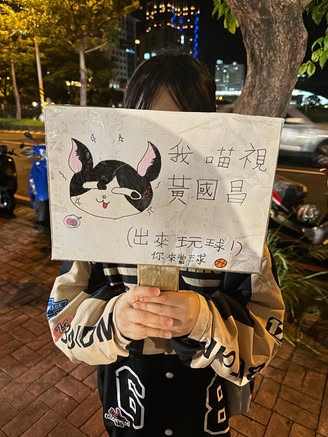 我喵視
黃國昌
(出來玩球!)
你來當毛球